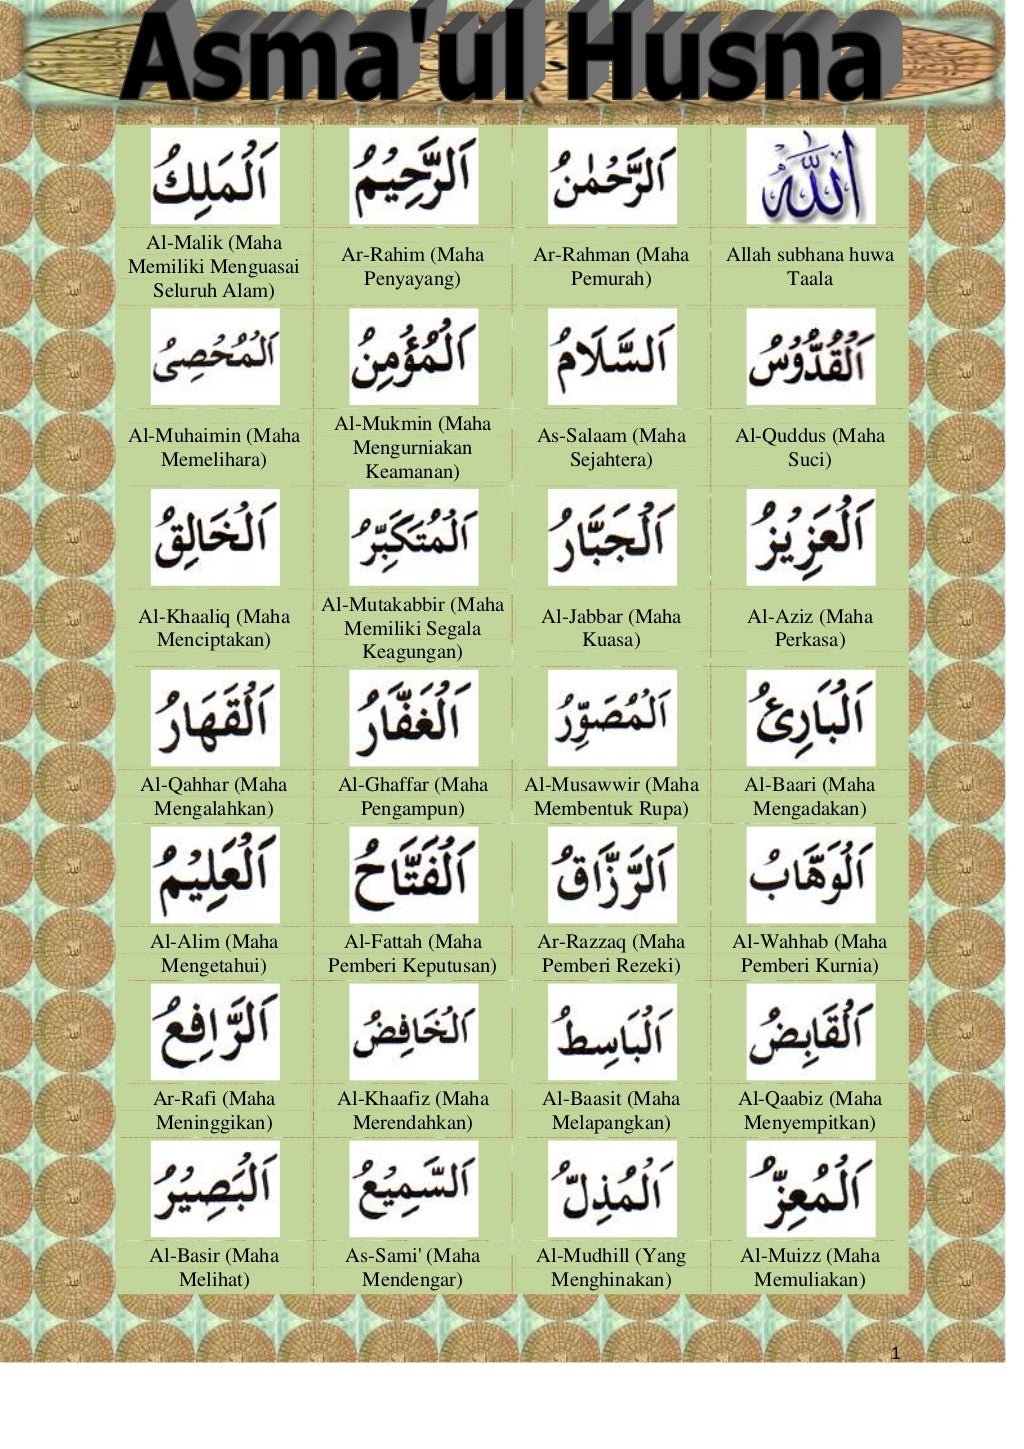 Asma'ul Husna
اللّٰه
Allah subhana huwa
Taala
اَلرَّحْمٰنُ
Ar-Rahman (Maha
Pemurah)
اَلرَّحِيْمُ
Ar-Rahim (Maha
Penyayang)
اَلْمَلِكُ
Al-Malik (Maha
Memiliki Menguasai
Seluruh Alam)
اَلْقُدُّوْسُ
Al-Quddus (Maha
Suci)
اَلسَّلَامُ
As-Salaam (Maha
Sejahtera)
اَلْمُؤْمِنُ
Al-Mukmin (Maha
Mengurniakan
Keamanan)
اَلْمُحْصِىُ
Al-Muhaimin (Maha
Memelihara)
اَلْعَزِيْزُ
Al-Aziz (Maha
Perkasa)
اَلْجَبَّارُ
Al-Jabbar (Maha
Kuasa)
اَلْمُتَكَبِّرُ
Al-Mutakabbir (Maha
Memiliki Segala
Keagungan)
اَلْخَالِقُ
Al-Khaaliq (Maha
Menciptakan)
اَلْبَارِئُ
Al-Baari (Maha
Mengadakan)
اَلْمُصَوِّرُ
Al-Musawwir (Maha
Membentuk Rupa)
اَلْغَفَّارُ
Al-Ghaffar (Maha
Pengampun)
اَلْقَهَارُ
Al-Qahhar (Maha
Mengalahkan)
اَلْوَهَّابُ
Al-Wahhab (Maha
Pemberi Kurnia)
اَلرَّزَّاقُ
Ar-Razzaq (Maha
Pemberi Rezeki)
اَلْفَتَّاحُ
Al-Fattah (Maha
Pemberi Keputusan)
اَلْعَلِيْمُ
Al-Alim (Maha
Mengetahui)
اَلْقَابِضُ
Al-Qaabiz (Maha
Menyempitkan)
اَلْبَاسِطُ
Al-Baasit (Maha
Melapangkan)
اَلْخَافِضُ
Al-Khaafiz (Maha
Merendahkan)
اَلرَّافِعُ
Ar-Rafi (Maha
Meninggikan)
اَلْمُعِزُّ
Al-Muizz (Maha
Memuliakan)
اَلْمُذِلُّ
Al-Mudhill (Yang
Menghinakan)
اَلسَّمِيْعُ
As-Sami' (Maha
Mendengar)
اَلْبَصِيْرُ
Al-Basir (Maha
Melihat)
1